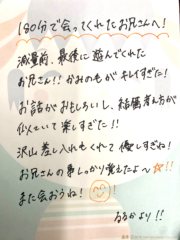 180分で会ってくれたお兄さんへ!
減量前、最後に遊んでくれた
お兄さん!! かみのもが キレイすぎた!
お話がおもしろいし、結構考え方が
似ていて楽しすぎた!!
沢山差し入れもくれて 優しすぎね!
お兄さんの事しっかり覚えたよ〜
また会おうね!
るるかより!!